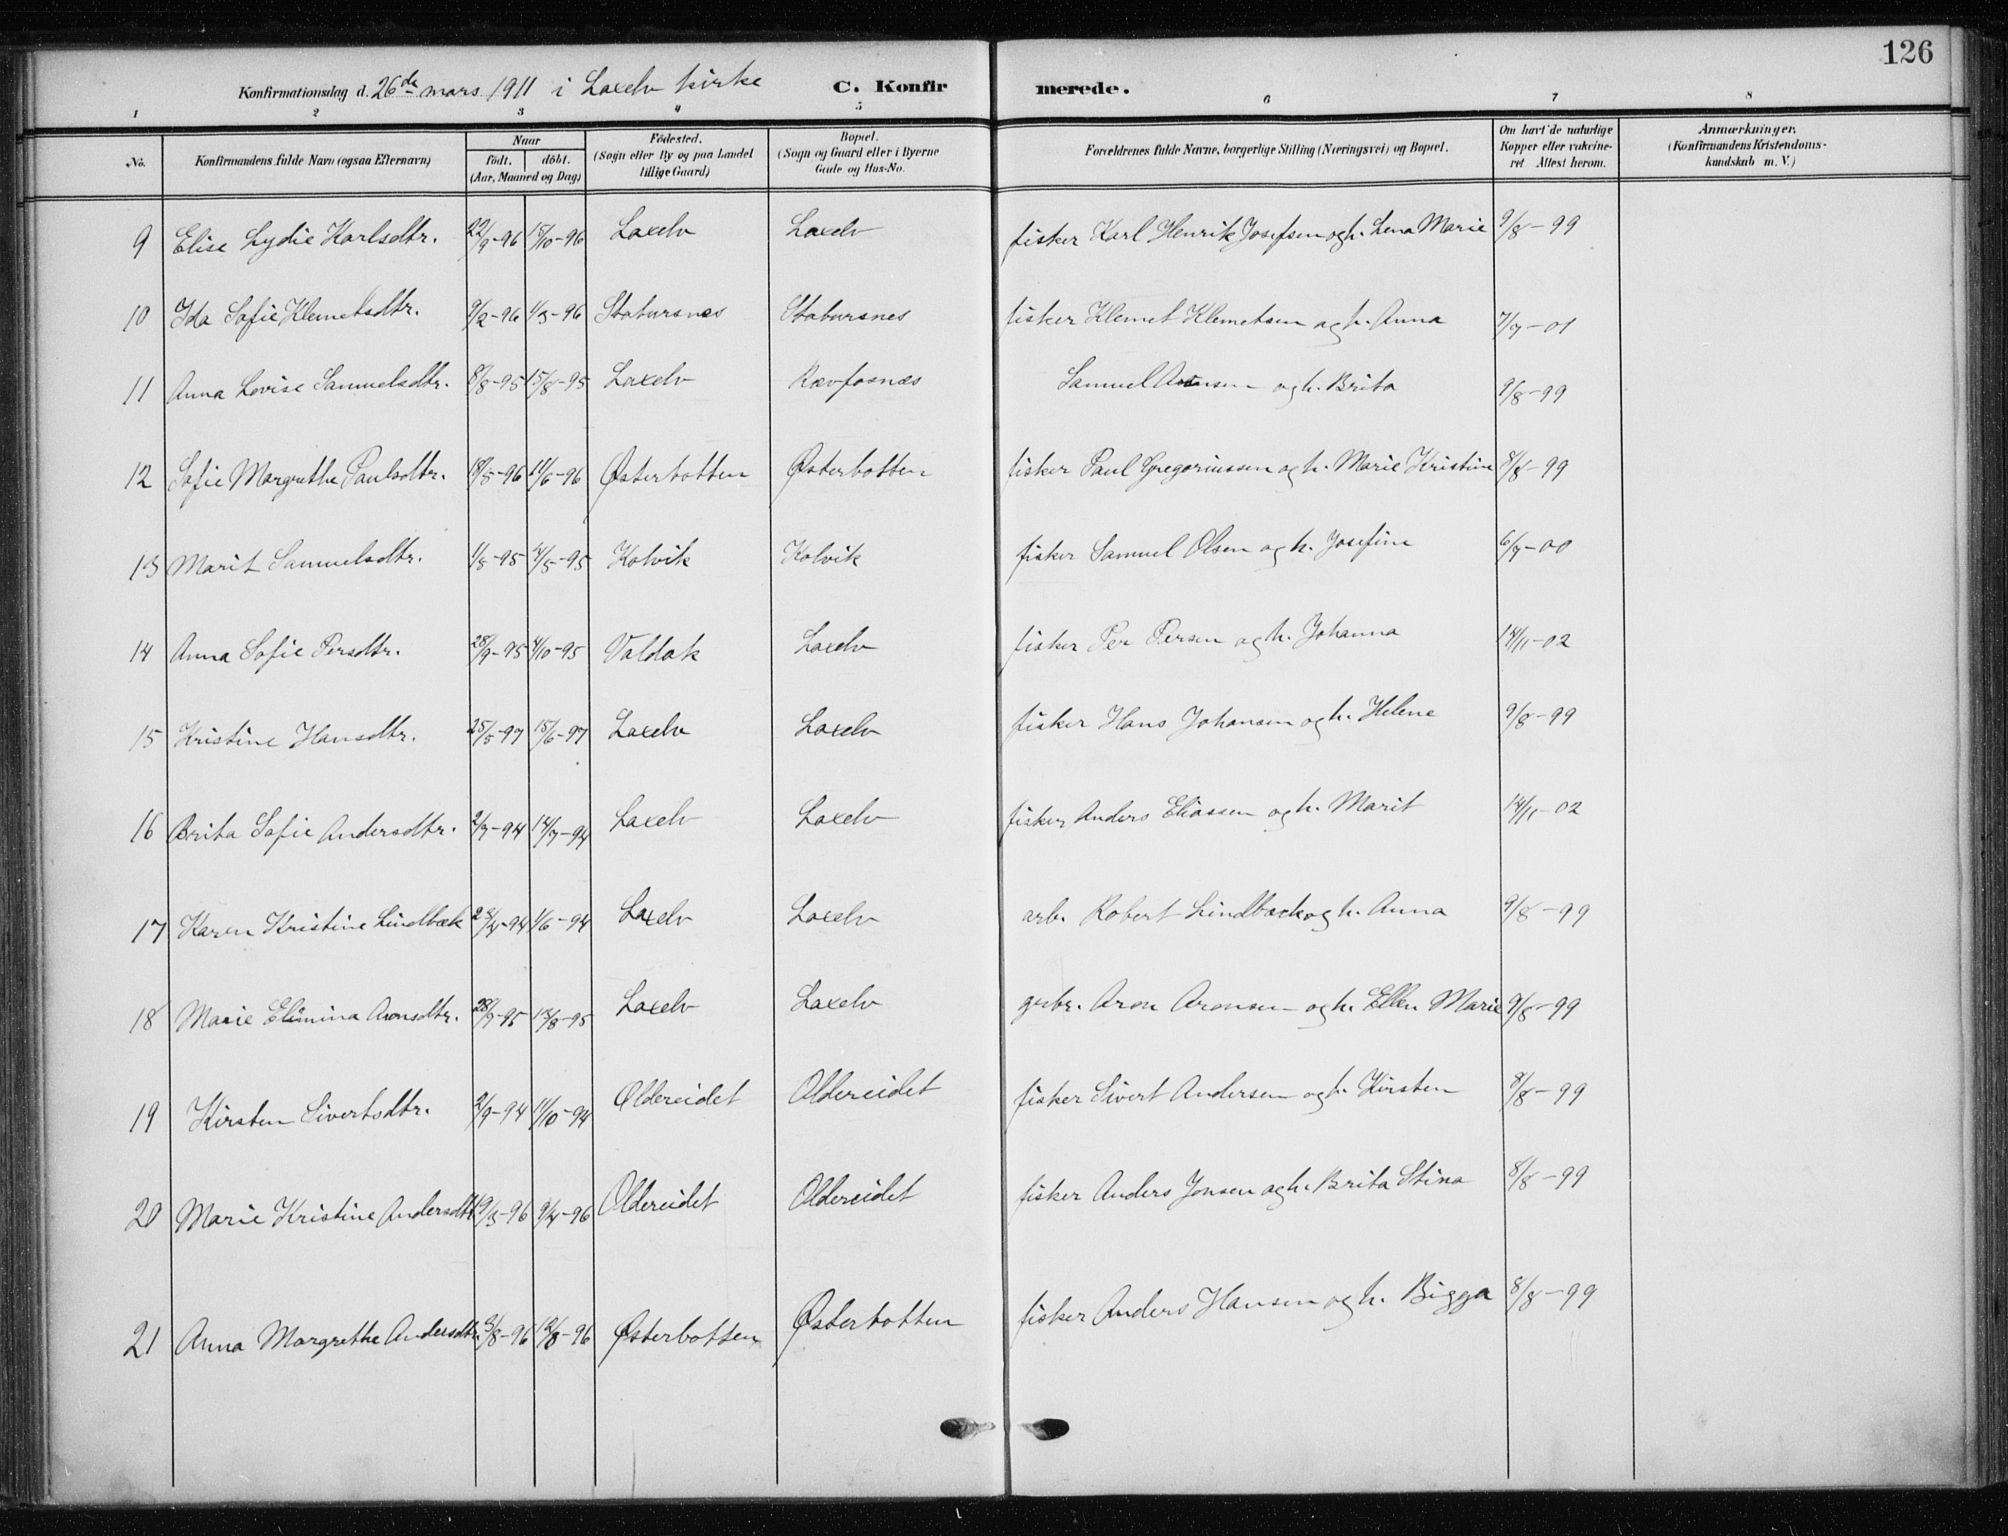 126
Konfirmationsdag d. 26de mars 1911 i Laxelv kirke C. Konfirmerede.
1 2 3 4 5 6 7 8
No. Konfirmandens fulde Navn (ogsaa Efternavn) Naar født. døbt. (Aar, Maaned og Dag) Fødested. (Sogn eller By og paa Landet tillige Gaard) Bopæl. (Sogn og Gaard eller i Byerne Gade og Hus-No. Forældrenes fulde Navne, borgerlige Stilling (Næringsvei) og Bopæl. Om havt de naturlige Kopper eller vakcineret Attest herom. Anmærkninger. (Konfirmandens Kristendomskundskab m. V.)
9 Elise Lydie Karlsdtr. 22/9-96 15/10-96 Laxelv Laxelv fisker Karl Henrik Josefsen og h. Lena Marie 9/8-99
10 Ida Sofie Klemetsdtr. 9/2-96 1/3-96 Stabursnes Stabursnes fisker Klemet Klemetsen og h. Anna 7/7-01
11 Anna Lovise Samuelsdtr. 8/8-95 15/8-95 Laxelv Rævfosnæs Samuel og h. Brita 9/8-99
12 Sofie Margrethe Paulsdtr. 18/5-96 11/6-96 Østerbotten Østerbotten fisker Paul Gregoriussen og h. Marie Kristine 8/8-99
13 Marit Samuelsdtr. -95 4/5-95 Kolvik Kolvik fisker Samuel Olsen og h. Josefine 6/7-00
14 Anna Sofie Persdtr. 28/9-95 4/10-95 Valdak Laxelv fisker Per Persen og h. Johanna 14/11-02
15 Kristine Hansdtr. 25/5-97 15/6-97 Laxelv Laxelv fisker Hans Johansen og h. Helene 9/8-99
16 Brita Sofie Andersdtr. 2/7-94 14/7-94 Laxelv Laxelv fisker Anders Eliassen og h. Marit 14/11-02
17 Karen Kristine Lindbæk 25/4-94 1/6-94 Laxelv Laxelv arb. Robert Lindbæck og h. Anna 9/8-99
18 Marie Elimina Aronsdtr. 28/7-95 13/8-95 Laxelv Laxelv grbr. Aron Aronsen og h. Ellen Marie 9/8-99
19 Kirsten Sivertsdtr. 2/9-94 11/10-94 Oldereidet Oldereidet fisker Sivert Andersen og h. Kirsten 8/8-99
20 Marie Kristine Andersdtr. 19/3-96 9/4-96 Oldereidet Oldereidet fisker Anders Jonsen og h. Brita Stina 8/8-99
21 Anna Margrethe Andersdtr. 3/8-96 12/8-96 Østerbotten Østerbotten fisker Anders Hansen og h. Bigga 8/8-99